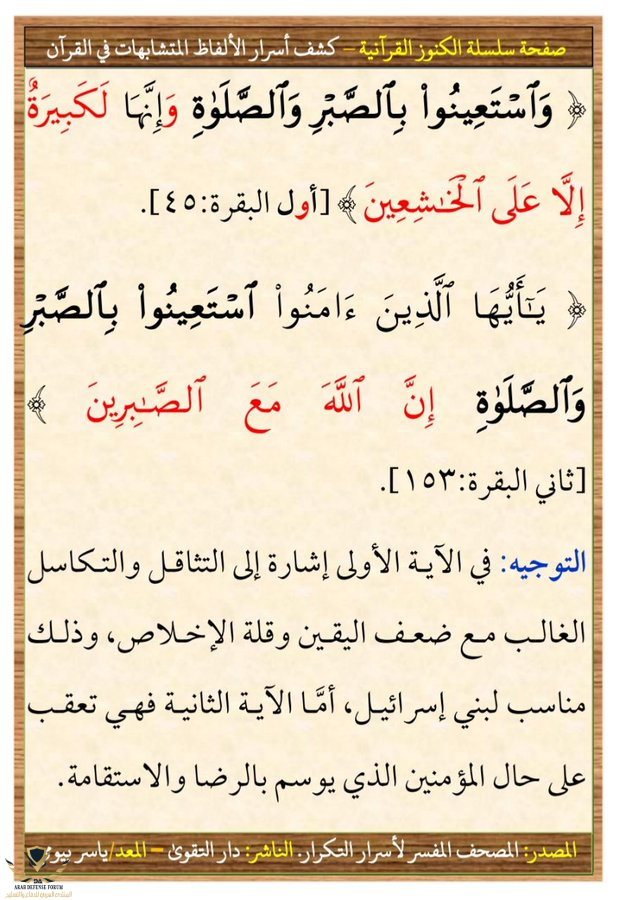 صفحة سلسلة الكنوز القرآنية – كشف أسرار الألفاظ المتشابهات في القرآن
﴿ وَٱسْتَعِينُوا۟ بِٱلصَّبْرِ وَٱلصَّلَوٰةِ وَإِنَّهَا لَكَبِيرَةٌ
إِلَّا عَلَى ٱلْخَـٰشِعِينَ ﴾ [أول البقرة:٤٥].
﴿ يَـٰٓأَيُّهَا ٱلَّذِينَ ءَامَنُوا۟ ٱسْتَعِينُوا۟ بِٱلصَّبْرِ
وَٱلصَّلَوٰةِ إِنَّ ٱللَّهَ مَعَ ٱلصَّـٰبِرِينَ ﴾
[ثاني البقرة:١٥٣].
التوجيه: في الآية الأولى إشارة إلى التثاقل والتكاسل
الغالب مع ضعف اليقين وقلة الإخلاص، وذلك
مناسب لبني إسرائيل، أمَّا الآية الثانية فهي تعقب
على حال المؤمنين الذي يوسم بالرضا والاستقامة.
المصدر: المصحف المفسر لأسرار التكرار. الناشر: دار التقوىٰ – المعد/ياسر بيومي
ARAB DEFENSE FORUM
المنتدى العربي للدفاع والتسليح